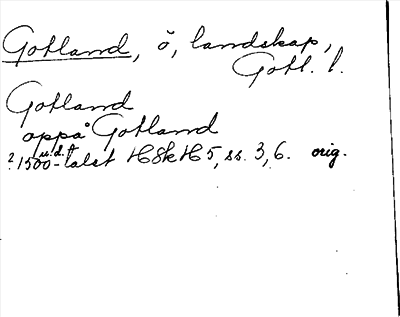 Gotland, ö, landskap,
Gotl. l.
Gotland
oppå Gotland
u.d.
? 1500-talet HSk H 5, ss. 3, 6. orig.